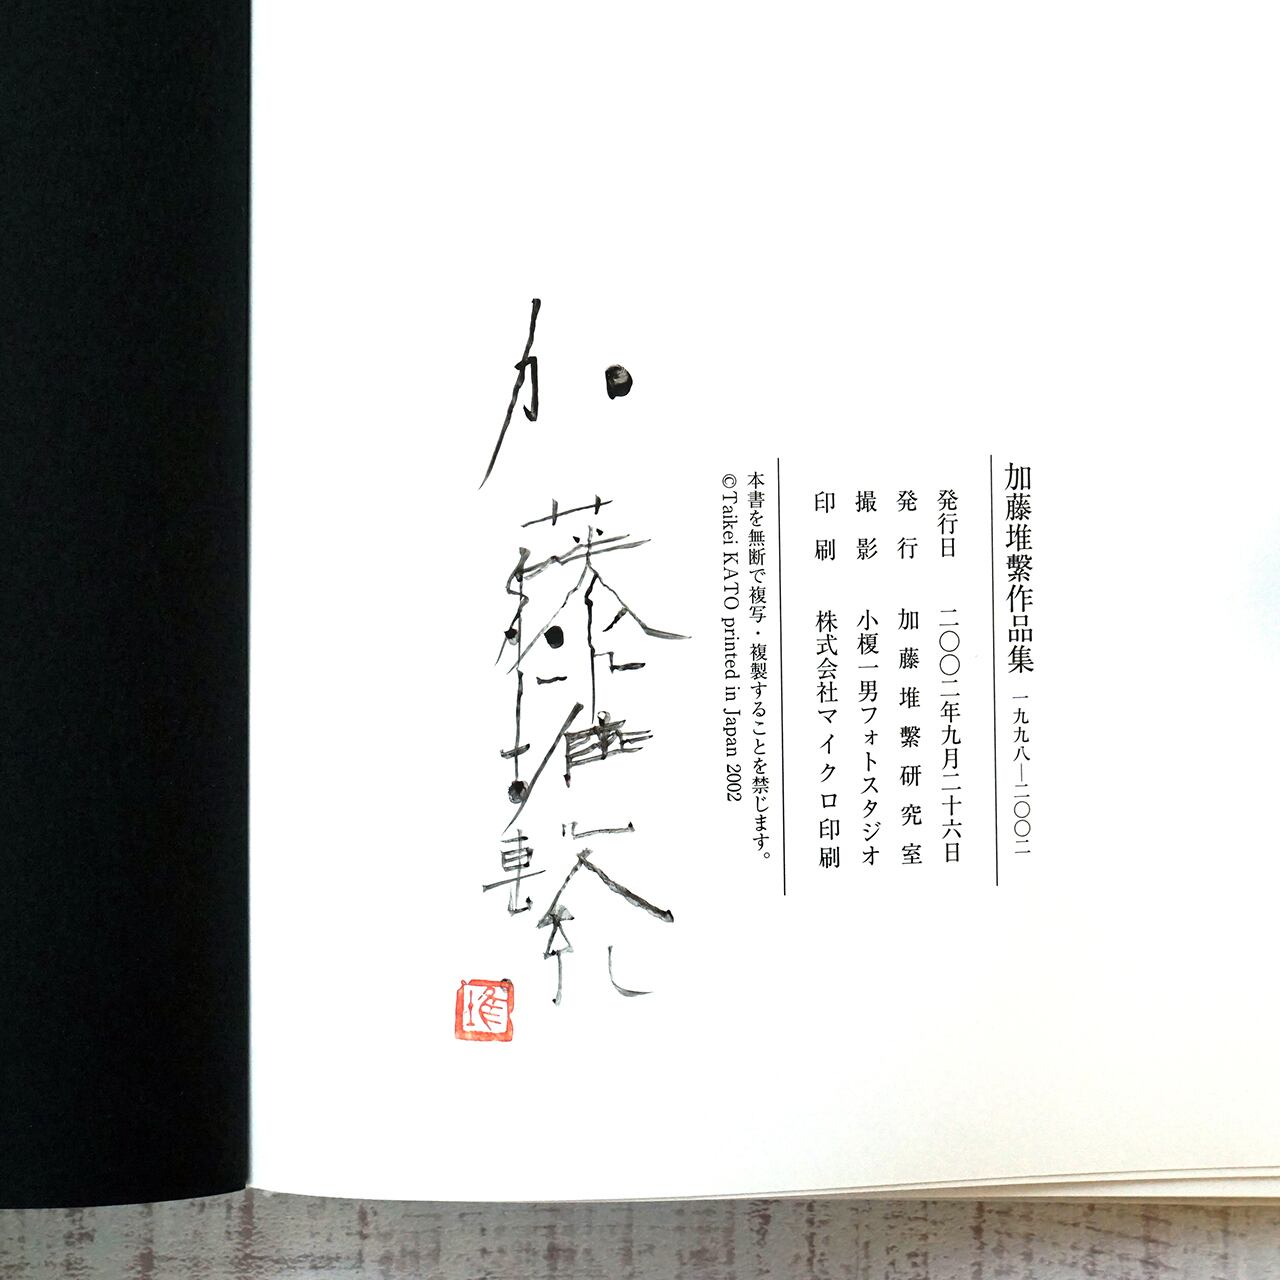 加藤堆繫作品集 一九九八―二〇〇二
発行日 二〇〇二年九月二十六日
発行 加藤堆繫研究室
撮影 小榎一男フォトスタジオ
印刷 株式会社マイクロ印刷
本書を無断で複写・複製することを禁じます。
©Taikei KATO printed in Japan 2002
加藤堆繫
堆